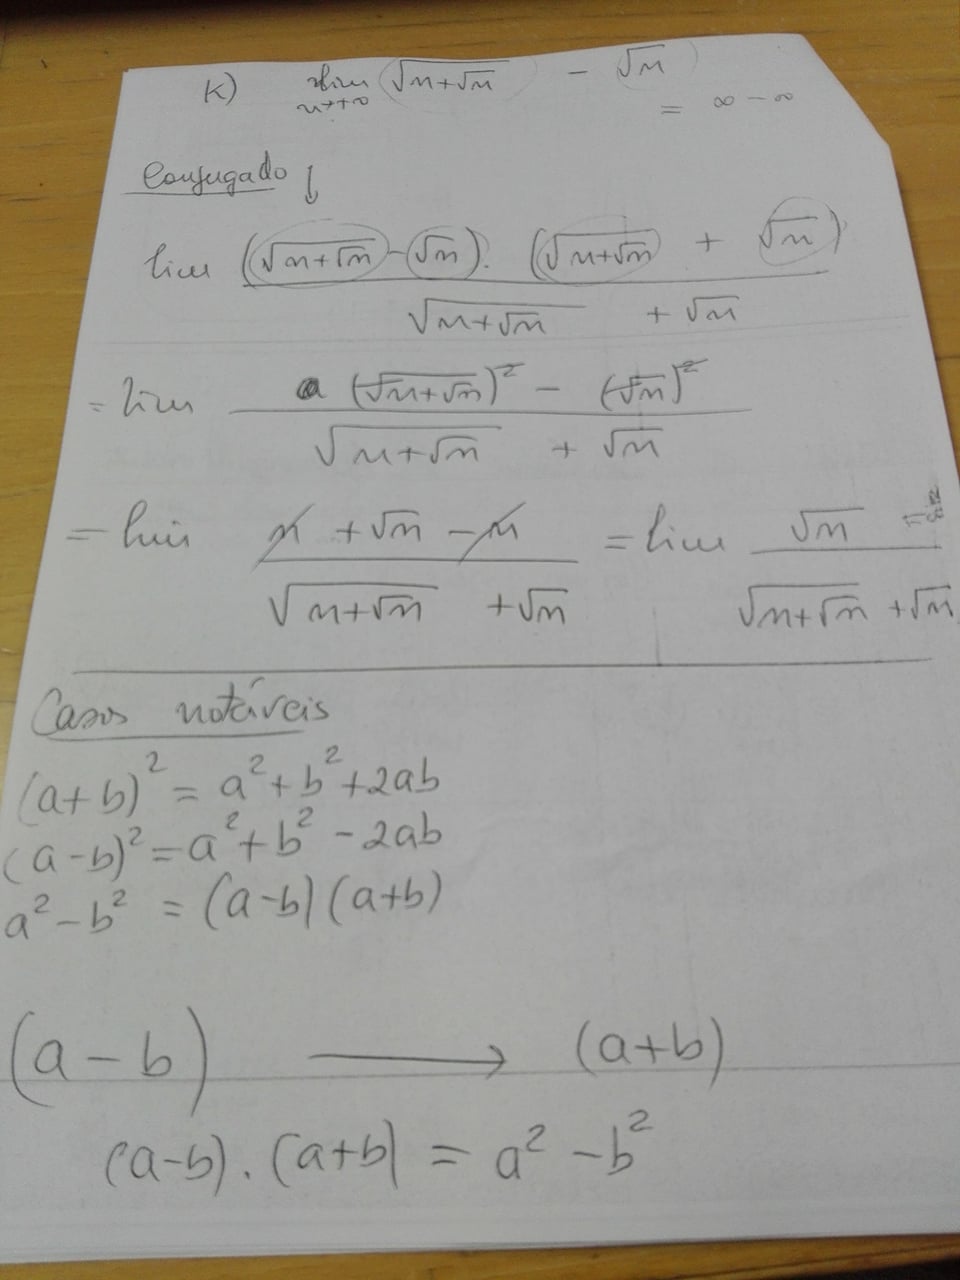 K) lim √(n+√n) - √n
n→+∞ = ∞ - ∞
Conjugado ↓
lim ((√(n+√n) - √n) · (√(n+√n) + √n)) / (√(n+√n) + √n)
= lim ((√(n+√n))² - (√n)²) / (√(n+√n) + √n)
= lim (n + √n - n) / (√(n+√n) + √n) = lim √n / (√(n+√n) + √n)
Casos notáveis
(a+b)² = a² + b² + 2ab
(a-b)² = a² + b² - 2ab
a² - b² = (a-b) (a+b)
(a - b) → (a+b)
(a-b) . (a+b) = a² - b²